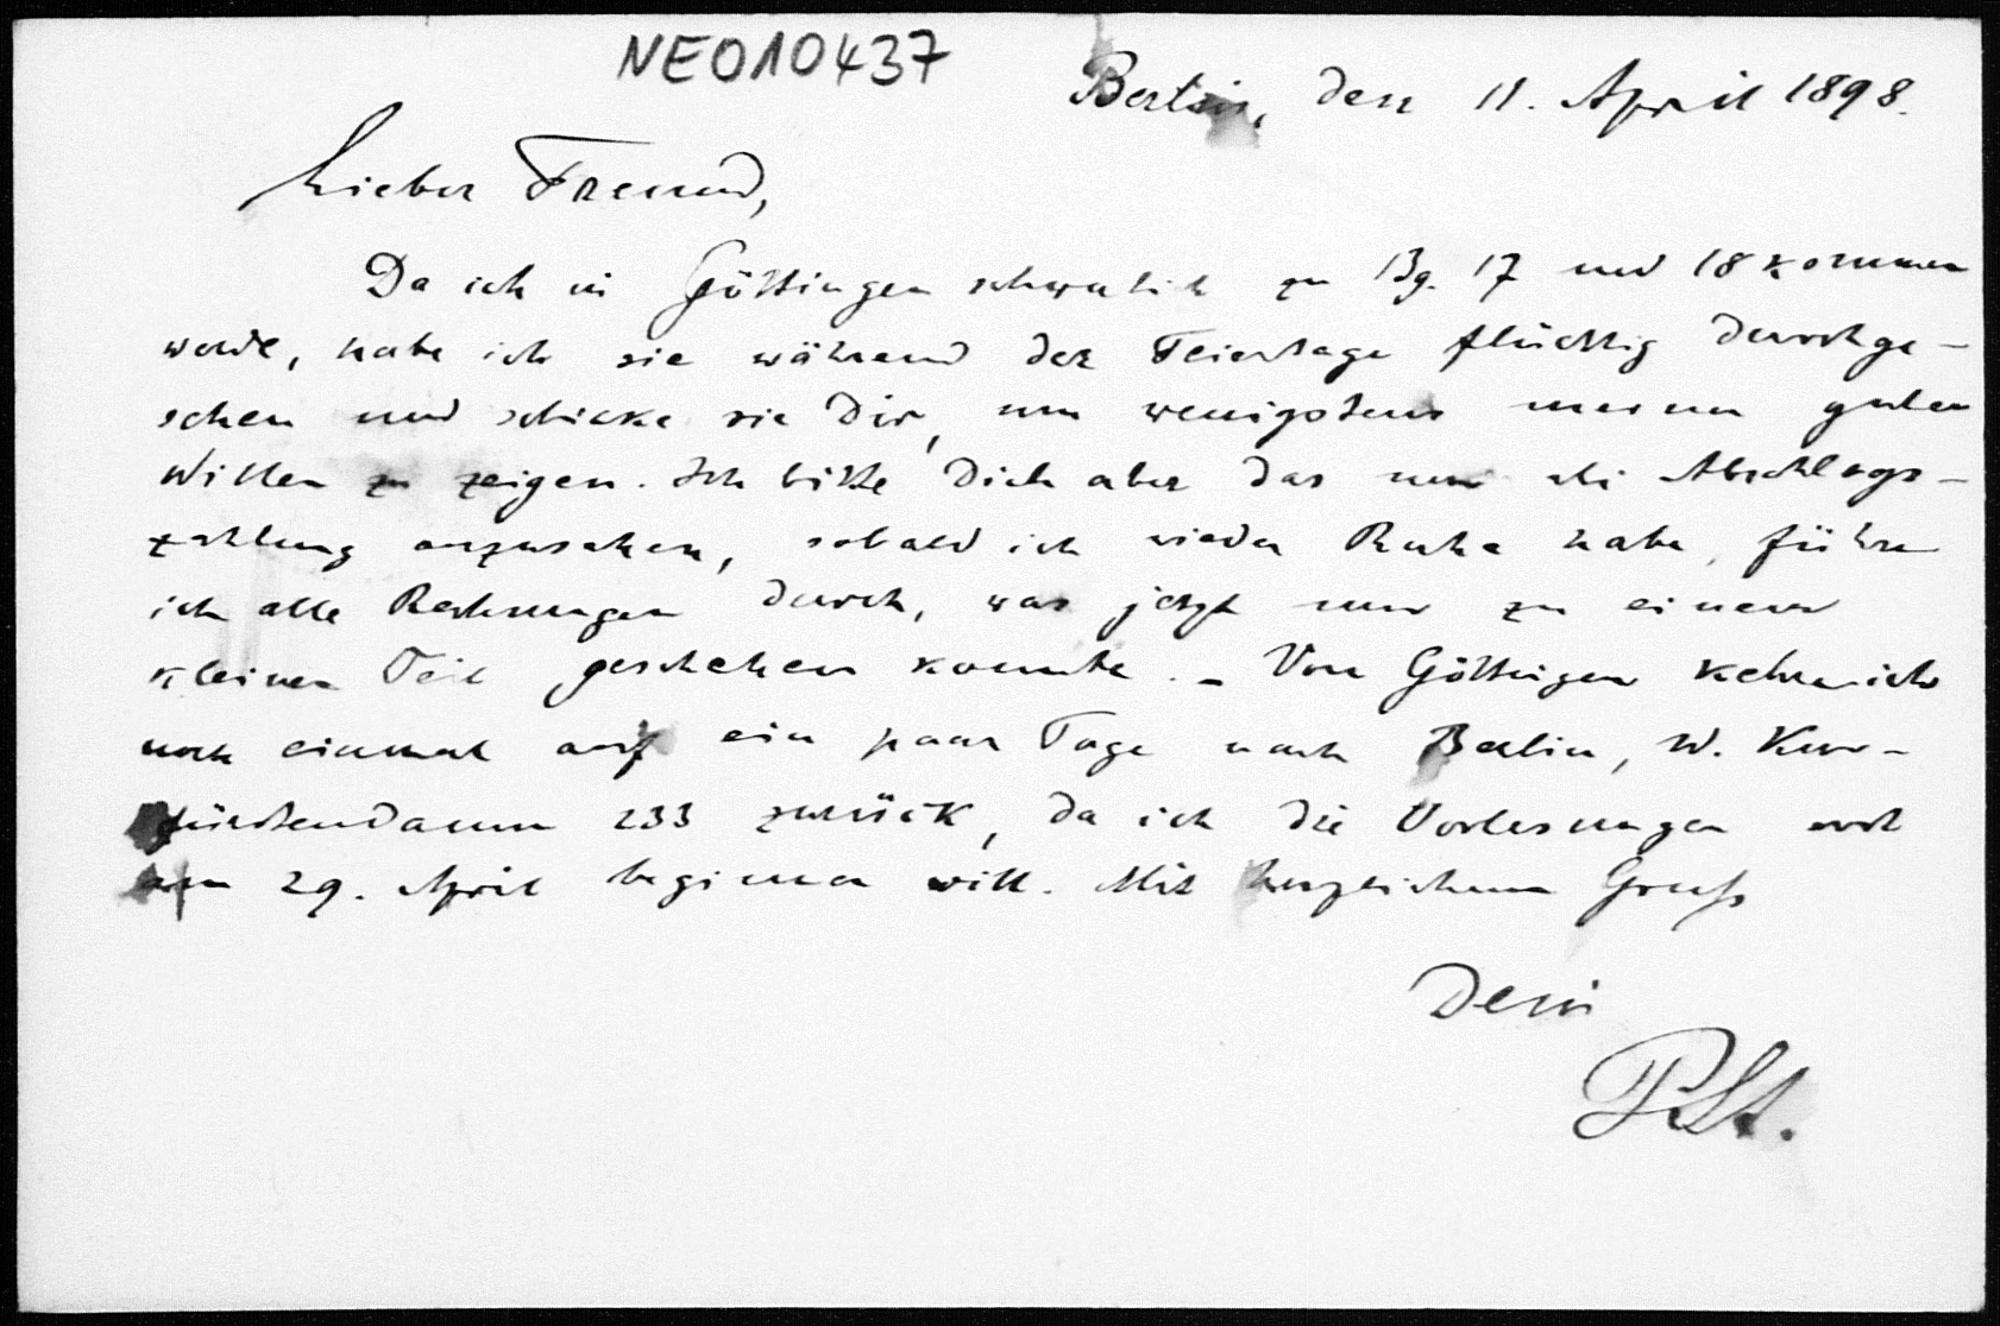 NEO10437
Berlin, den 11. April 1898.
Lieber Freund,
Da ich in Göttingen schwerlich zu Bg. 17 und 18 kommen
werde, habe ich sie während der Feiertage flüchtig durchge-
sehen und schicke sie Dir, um wenigstens meinen guten
Willen zu zeigen. Ich bitte Dich aber das nur als Abschlags-
zahlung anzusehen, sobald ich wieder Ruhe habe, führe
ich alle Rechnungen durch, was jetzt nur zu einem
kleinen Teil geschehen konnte. – Von Göttingen kehre ich
noch einmal auf ein paar Tage nach Berlin, W. Kur-
fürstendamm 233 zurück, da ich die Vorlesungen erst
am 29. April beginnen will. Mit herzlichem Gruß
Dein
PSt.